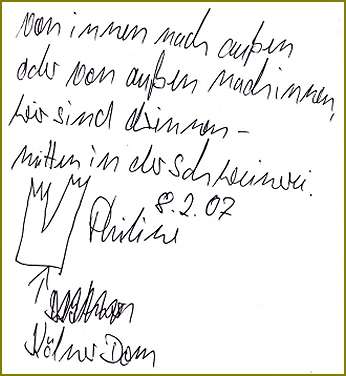 von innen nach außen
oder von außen nach innen,
wir sind drinnen –
mitten in der Schweinerei.
8.2.07
Philine
Kölner Dom